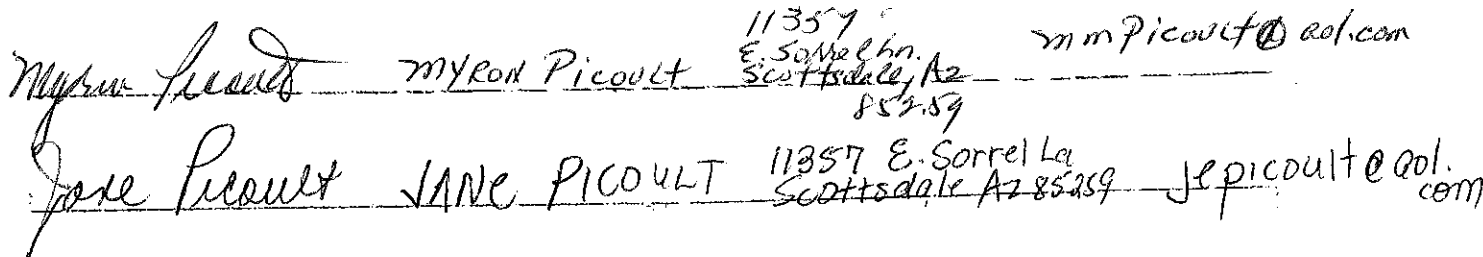 Myron Picoult MYRON Picoult 11357 E. Sorrel Ln. Scottsdale, Az 85259 mmPicoult@aol.com
Jane Picoult JANE PICOULT 11357 E. Sorrel La Scottsdale Az 85259 jepicoult@aol.com